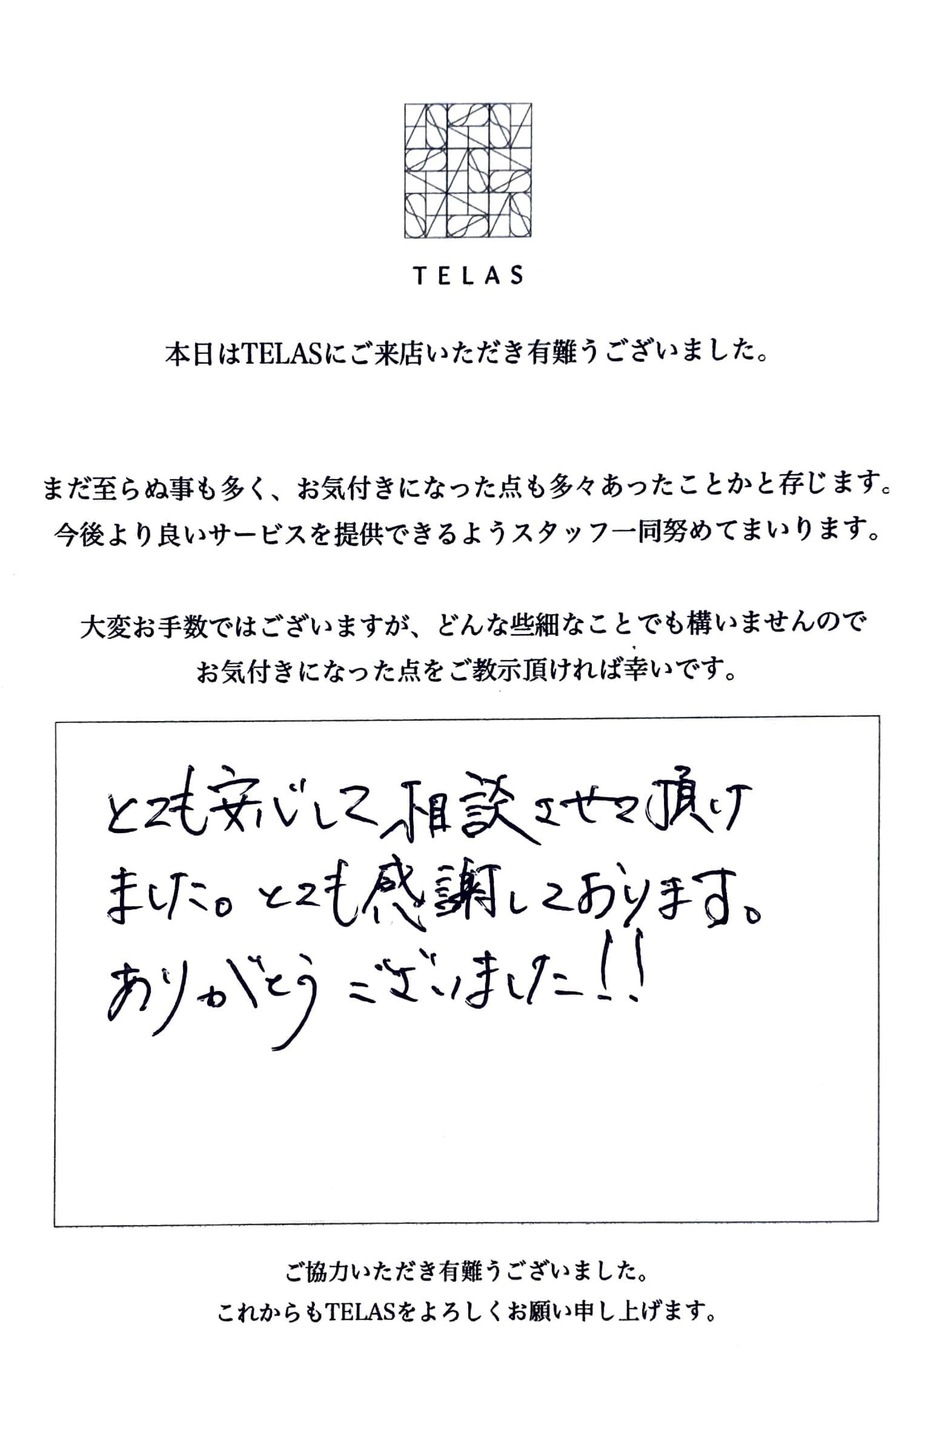 TELAS
本日はTELASにご来店いただき有難うございました。
まだ至らぬ事も多く、お気付きになった点も多々あったことかと存じます。
今後より良いサービスを提供できるようスタッフ一同努めてまいります。
大変お手数ではございますが、どんな些細なことでも構いませんので
お気付きになった点をご教示頂ければ幸いです。
とても安心して相談させて頂け
ました。とても感謝しております。
ありがとうございました!!
ご協力いただき有難うございました。
これからもTELASをよろしくお願い申し上げます。